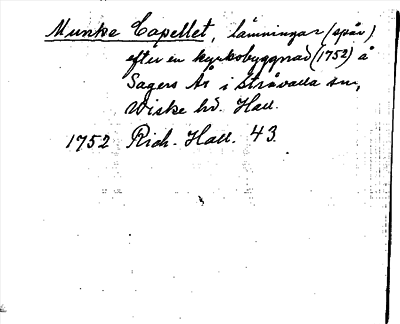 Munke Capellet, lämningar (spår)
efter en kyrkobyggnad (1752) å
Sagers Ås i Stråvalla sn,
Viske hd. Hall.
1752 Rich. Hall. 43.